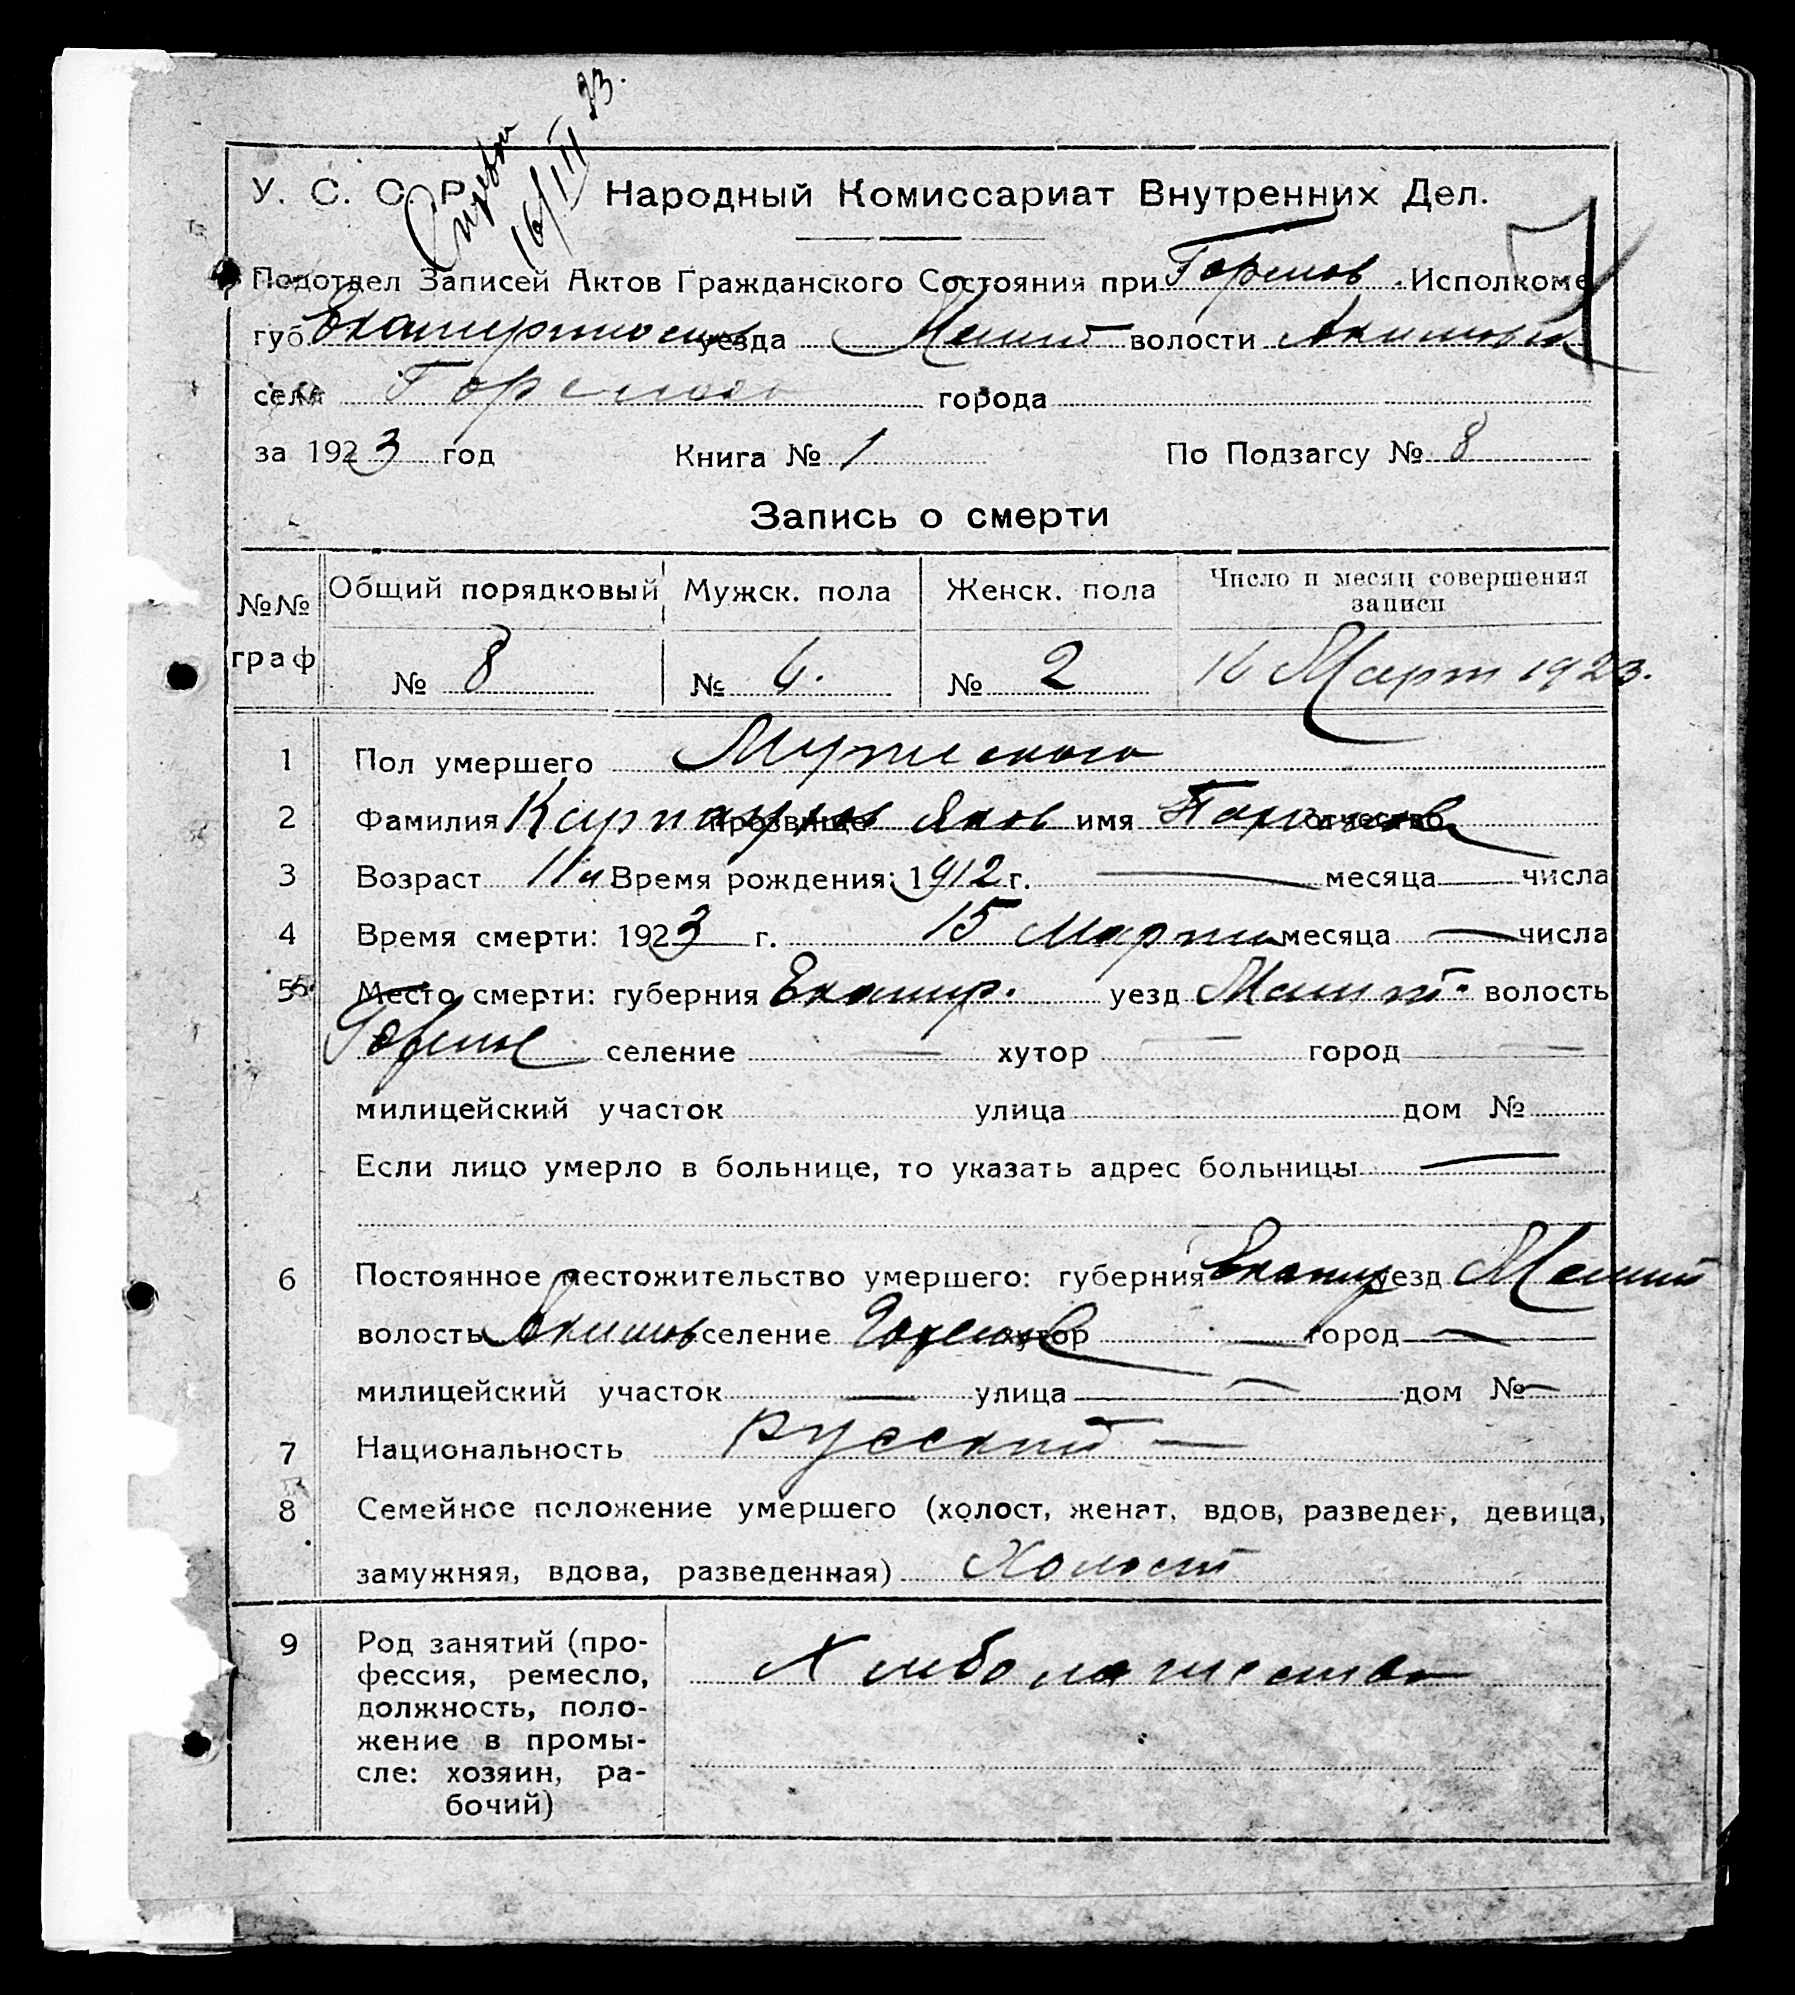 16/III 23.
У. С. С. Р. Народный Комиссариат Внутренних Дел.
Подотдел Записей Актов Гражданского Состояния при Исполкоме
губ. уезда волости
села города
за 1923 год Книга № 1 По Подзагсу № 8
Запись о смерти
№№ граф Общий порядковый Мужск. пола Женск. пола Число и месяц совершения записи
№ 8 № 6. № 2 16 Март 1923.
1 Пол умершего Мужеского
2 Фамилия прозвище Яков имя отчество
3 Возраст 11 Время рождения: 1912 г. — месяца — числа
4 Время смерти: 1923 г. 15 Марта месяца — числа
5 Место смерти: губерния Екатер. уезд волость
селение — хутор — город —
милицейский участок улица дом №
Если лицо умерло в больнице, то указать адрес больницы —
6 Постоянное местожительство умершего: губерния Екатер уезд
волость Акимов селение хутор — город —
милицейский участок — улица — дом № —
7 Национальность русский —
8 Семейное положение умершего (холост, женат, вдов, разведен, девица,
замужняя, вдова, разведенная) Холост
9 Род занятий (про-
фессия, ремесло,
должность, поло-
жение в промы-
сле: хозяин, ра-
бочий)